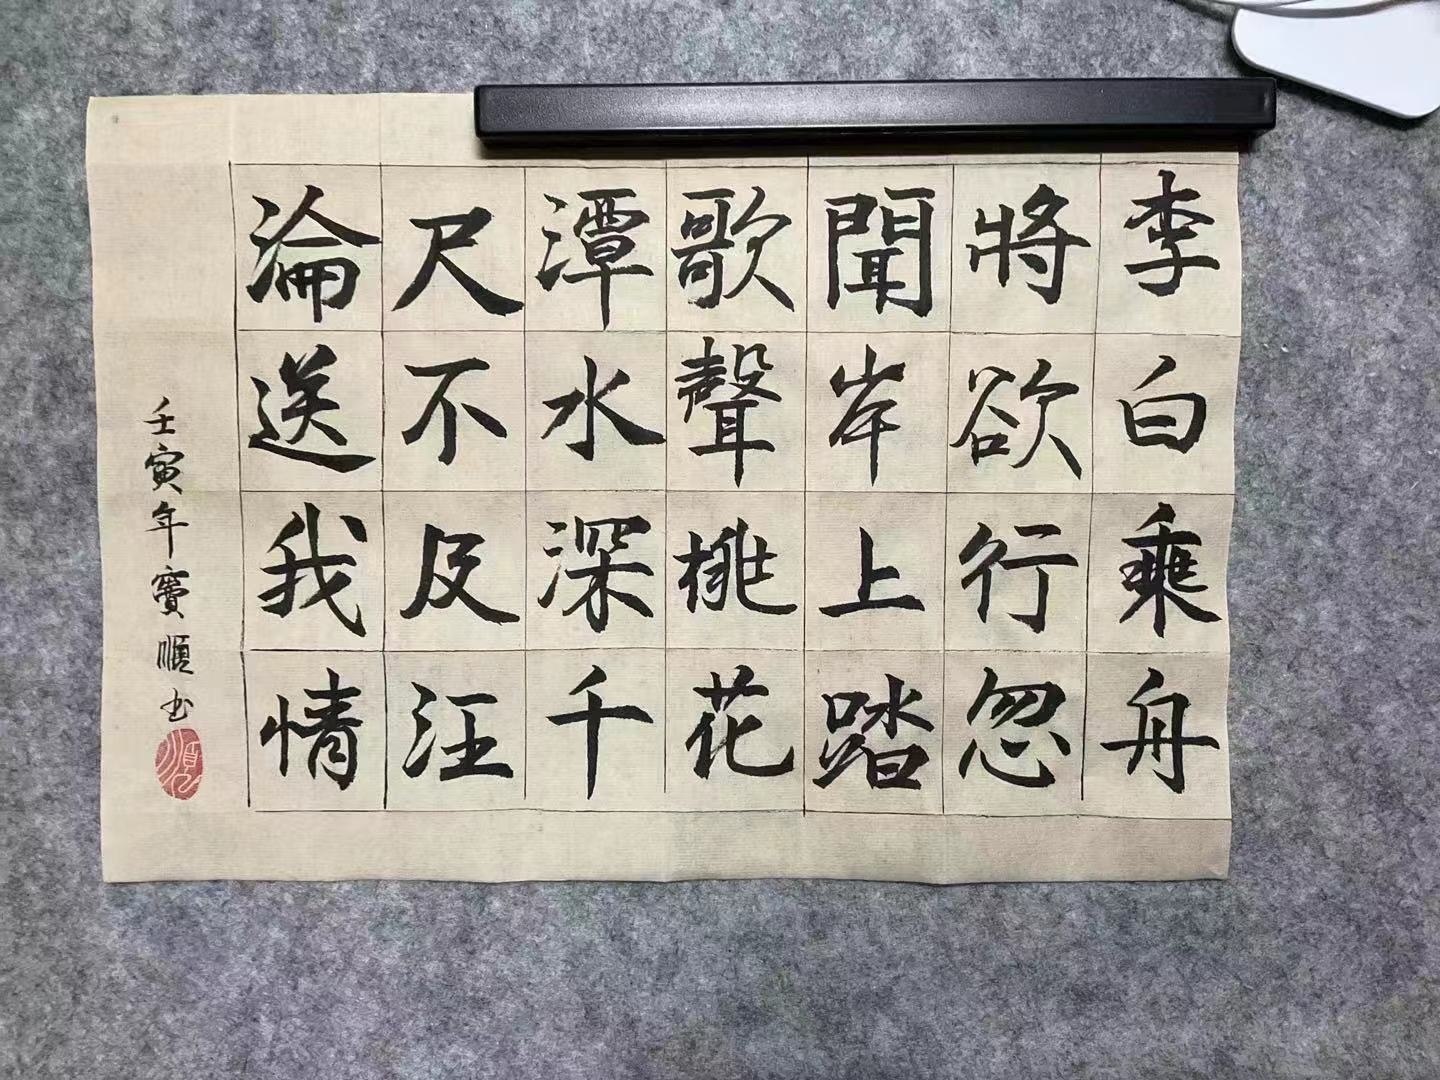 李白乘舟
將欲行忽
聞岸上踏
歌聲桃花
潭水深千
尺不及汪
淪送我情
壬寅年寶順书